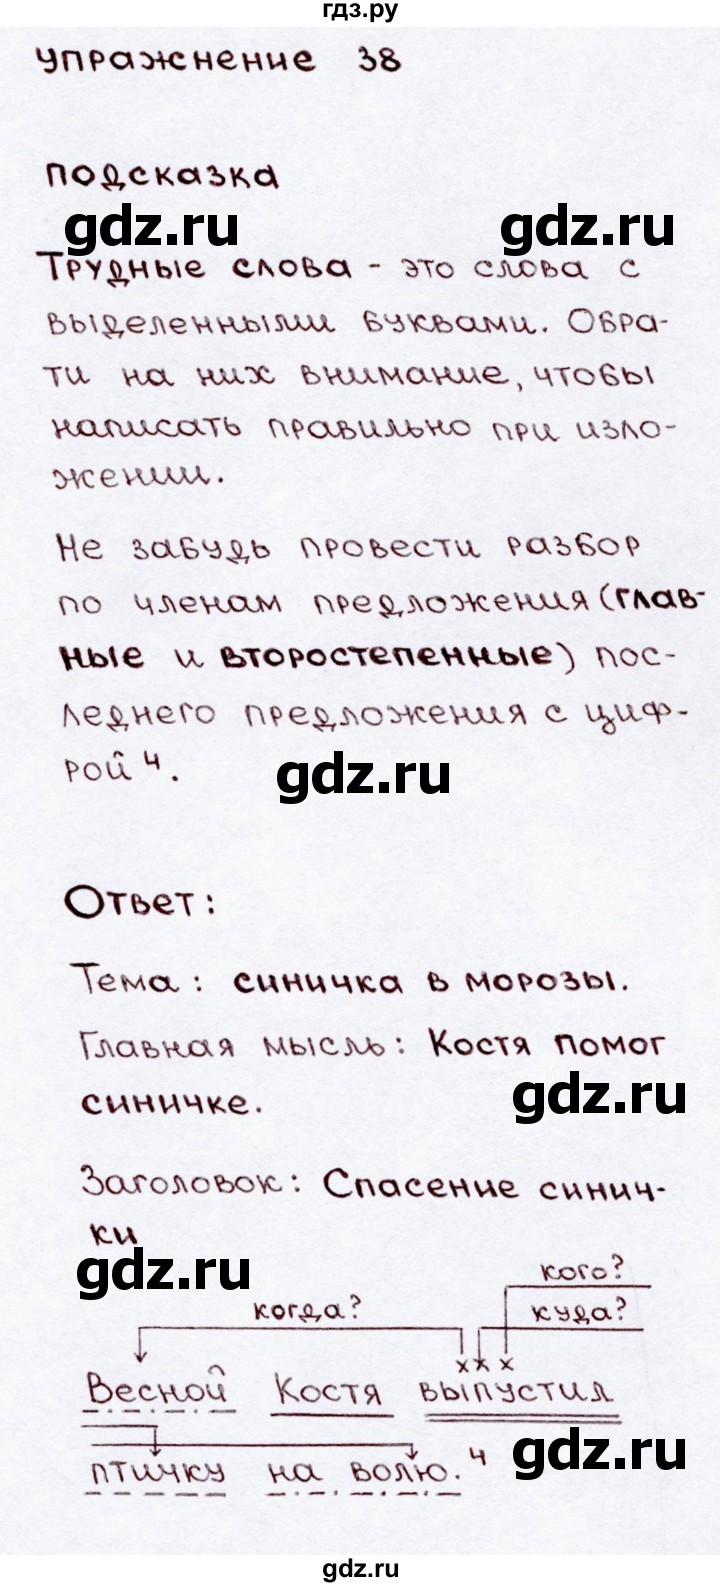 гдз.ру
упражнение 38
подсказка
gdz.ru gdz.ru
Трудные слова - это слова с
выделенными буквами. Обра-
ти на них внимание, чтобы
написать правильно при изло-
жении.
Не забудь провести разбор
по членам предложения (глав-
ные и второстепенные) пос-
леднего предложения с циф-
рой 4.
gdz.ru
Ответ:
Тема: синичка в морозы.
Главная мысль: Костя помог
gdz.ru
синичке.
Заголовок: Спасение синич-
ки
gdz.ru
кого?
когда? куда?
х х х
Весной Костя выпустил
gdz.ru
птичку на волю. 4
gdz.ru